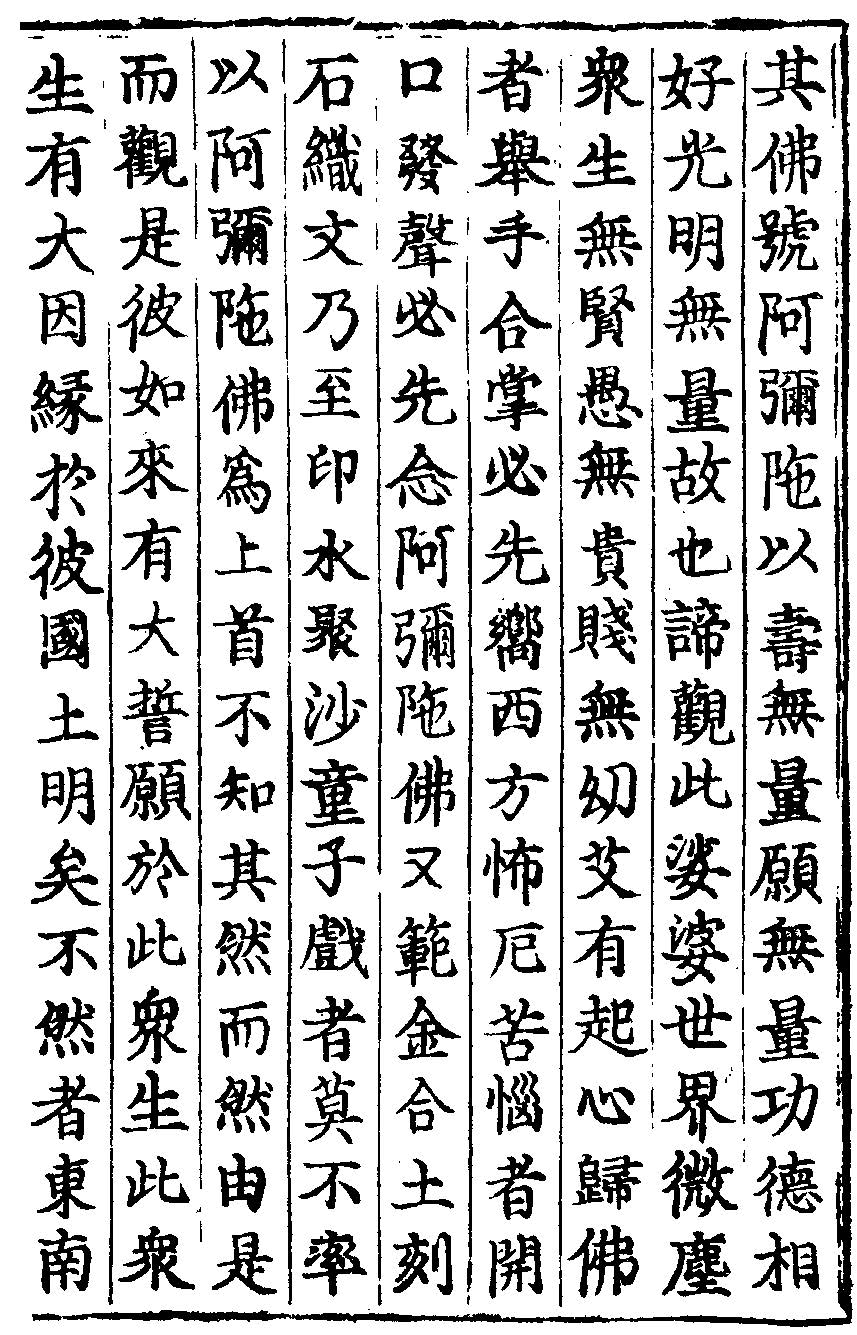 其佛號阿彌陁以壽無量願無量功德相
好光明無量故也諦觀此娑婆世界微塵
衆生無賢愚無貴賤無幼艾有起心歸佛
者舉手合掌必先嚮西方怖厄苦惱者開
口發聲必先念阿彌陁佛又範金合土刻
石織文乃至印水聚沙童子戲者莫不率
以阿彌陁佛爲上首不知其然而然由是
而觀是彼如來有大誓願於此衆生此衆
生有大因緣於彼國土明矣不然者東南